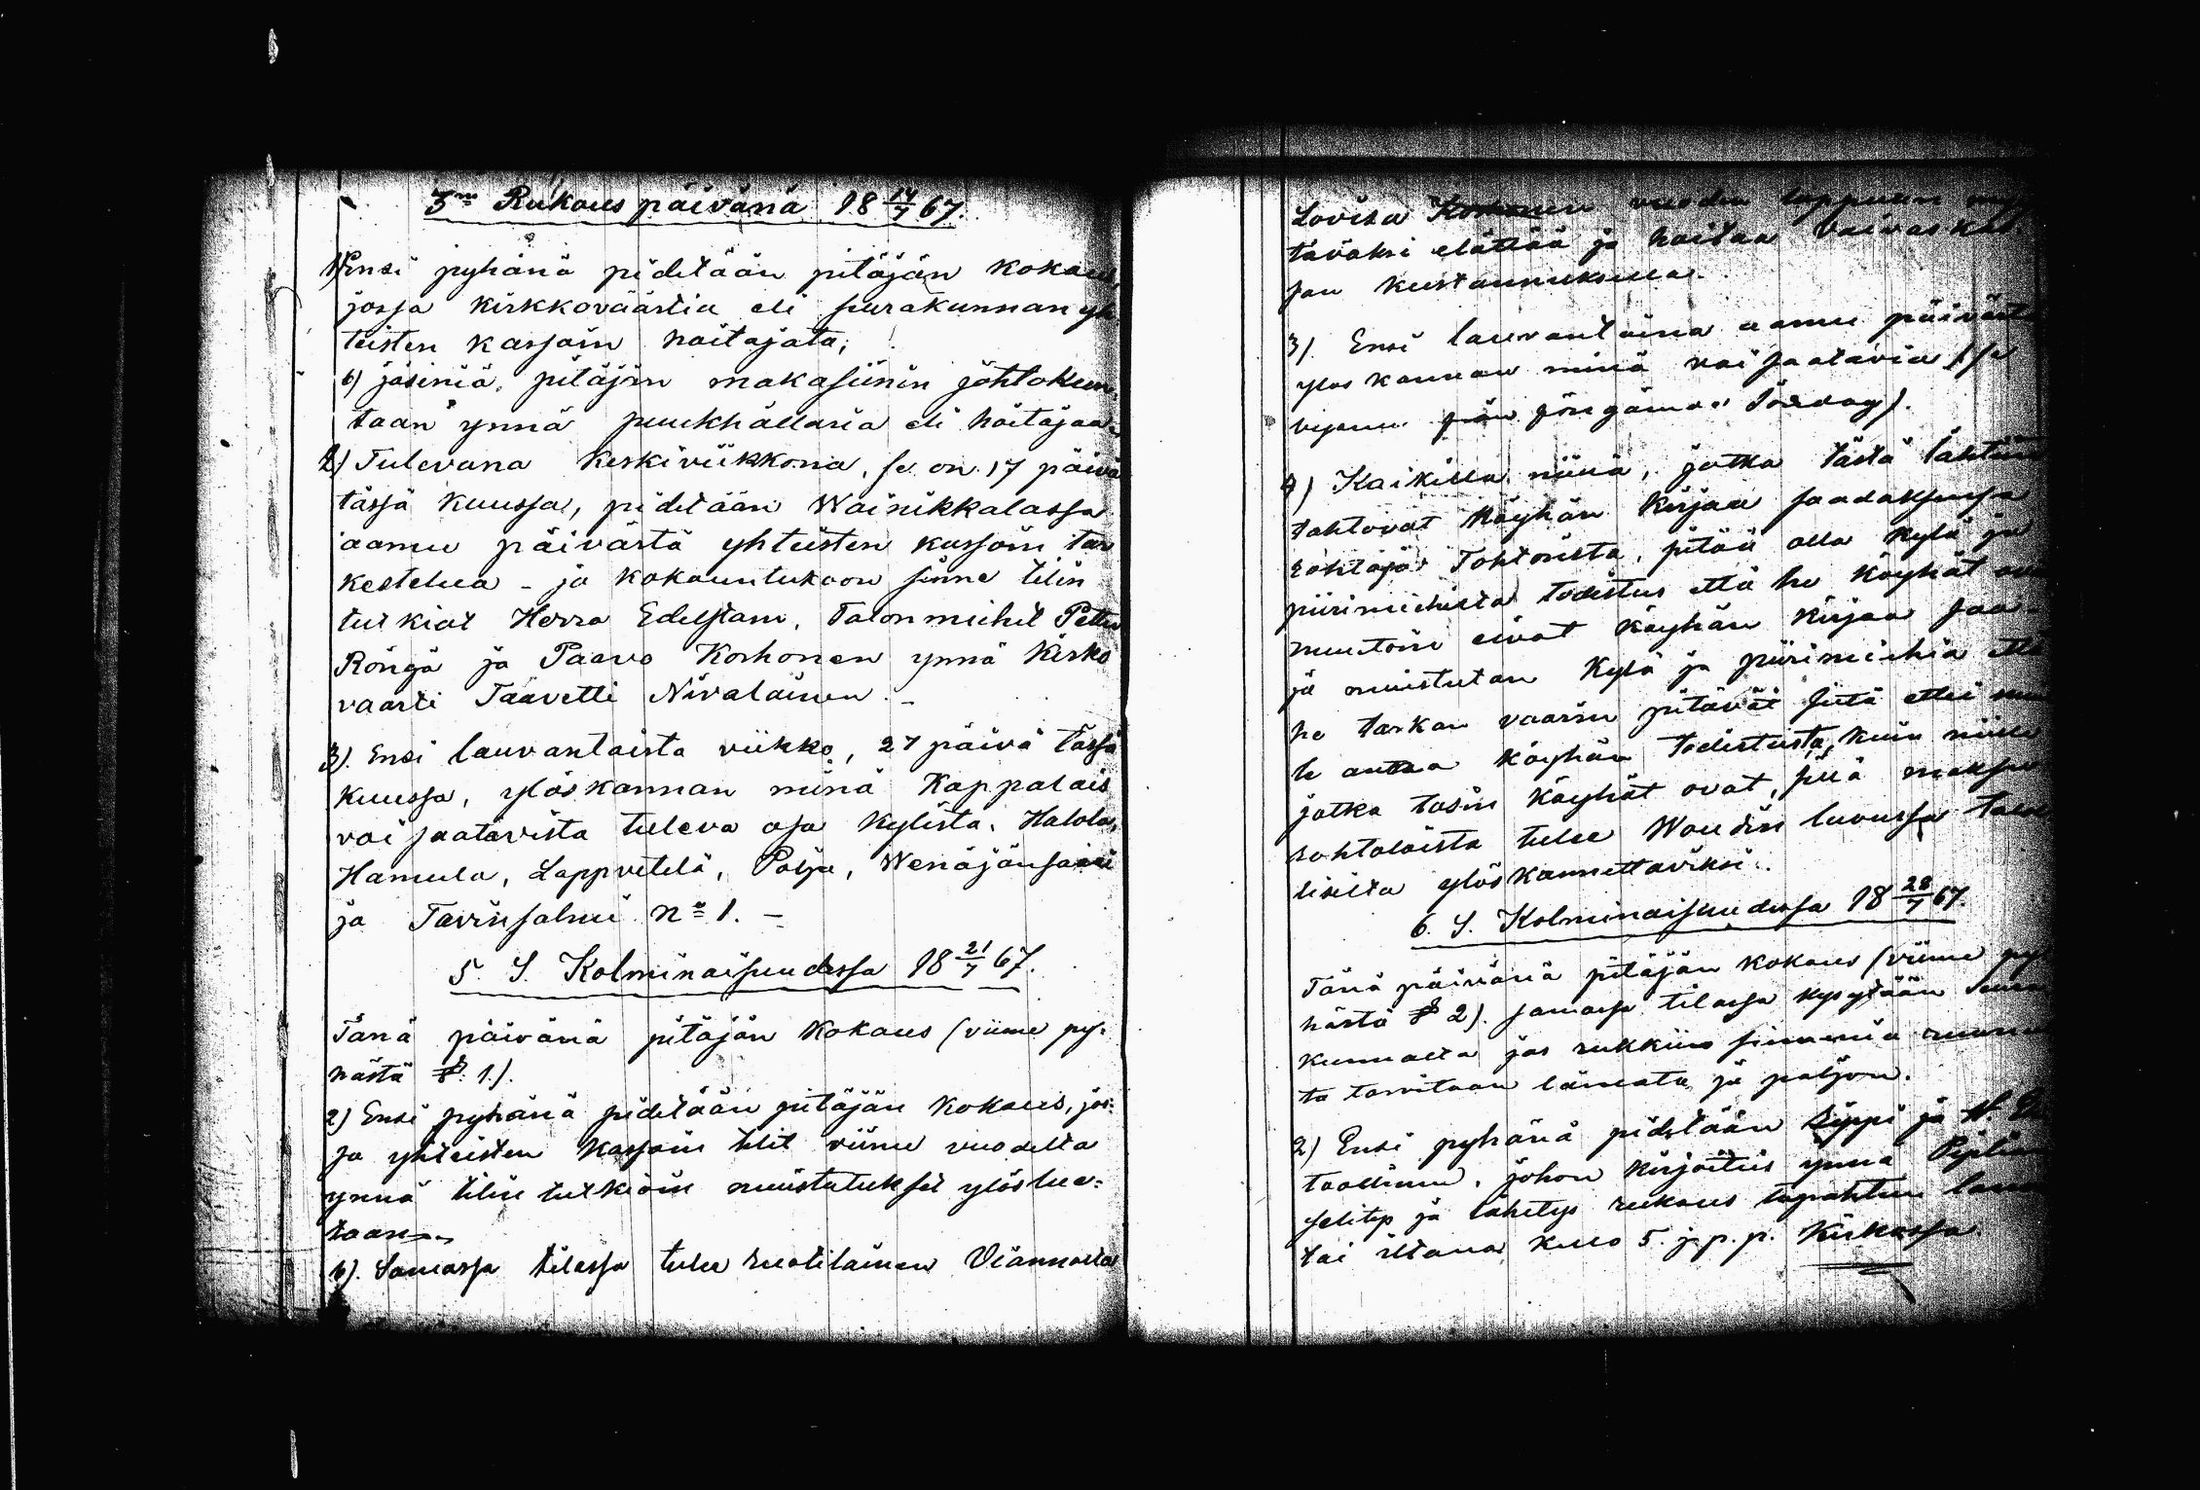 3:m Rukous päivänä 18 14/7 67.
1) Ensi pyhänä pidetään pitäjän kokous,
jossa kirkkoväärtia eli seurakunnan yh
teisten kassoin hoitajata,
b) jäseniä, pitäjän makasiinin johtokun-
taan ynnä puukhållaria eli hoitajaa.
2) Tulevana keskiviikkona, se on 17 päivä
tässä kuussa, pidetään Wainikkalassa
aamu päivästä yhteisten kassoin tar
kestelua - ja kokountukoon sinne tilin
tutkiat Herra Edelstam, Talonmiehet Petter
Röngä ja Paavo Korhonen ynnä Kirko
vaarti Taavetti Nivalainen. -
3). Ensi lauvantaista viikko, 27 päivä tässä
kuussa, ylöskannan minä Kappalais
voi saatavista tuleva osa kylistä, Halola,
Hamula, Lappvetelä, Pölja, Wenäjänsaari
ja Tavinsalmi N:o 1. -
5. S. Kolminaisuudessa 18 21/7 67.
Tänä päivänä pitäjän kokous (viime py-
hästä §. 1.).
2) Ensi pyhänä pidetään pitäjän kokous, jos-
sa yhteisten kassoin tilit viime vuodelta
ynnä tilin tutkioin muistutukset ylöslue-
taan.
b). Samassa tilassa tulee ruotilainen Viannolta
Lovisa Korhonen vuoden loppuun
täväksi elättää ja hoitaa Vaivas kas-
san kustannuksella.
3). Ensi lauvantaina aamu päivästä
ylöskannan minä voi saatavia (se
4) Kaikilla niinä, jotka tästä lähtein
tahtovat köyhän kirjaa saadaksensa
Tohtorista, pitää olla kylä ja
piirimiehistä todistus että he köyhät ovat
muutoin eivät köyhän kirjaa saa
ja muistutan kylä ja piirimiehiä että
he tarkan vaarin pitävät siitä ettei
antaa köyhän todistusta, kuin niille
jotka tosin köyhät ovat, sillä maksu
rohtoloista tulee Woudin luvussa
lisilta ylöskannettaviksi.
6. S. Kolminaisuudessa 18 28/7 67.
Tänä päivänä pitäjän kokous (viime py-
hästä § 2). samassa tilassa kysytään Seura
kunnalta jos rukkiin siemeniä
ta tarvitaan lainata ja paljon.
2) Ensi pyhänä pidetään Rippi ja H.
toollinen, johon kirjoitus ynnä Piplian
selitys ja lähetys rukous tapahtuu
tai iltana kello 5. j. p. p. Kirkossa.